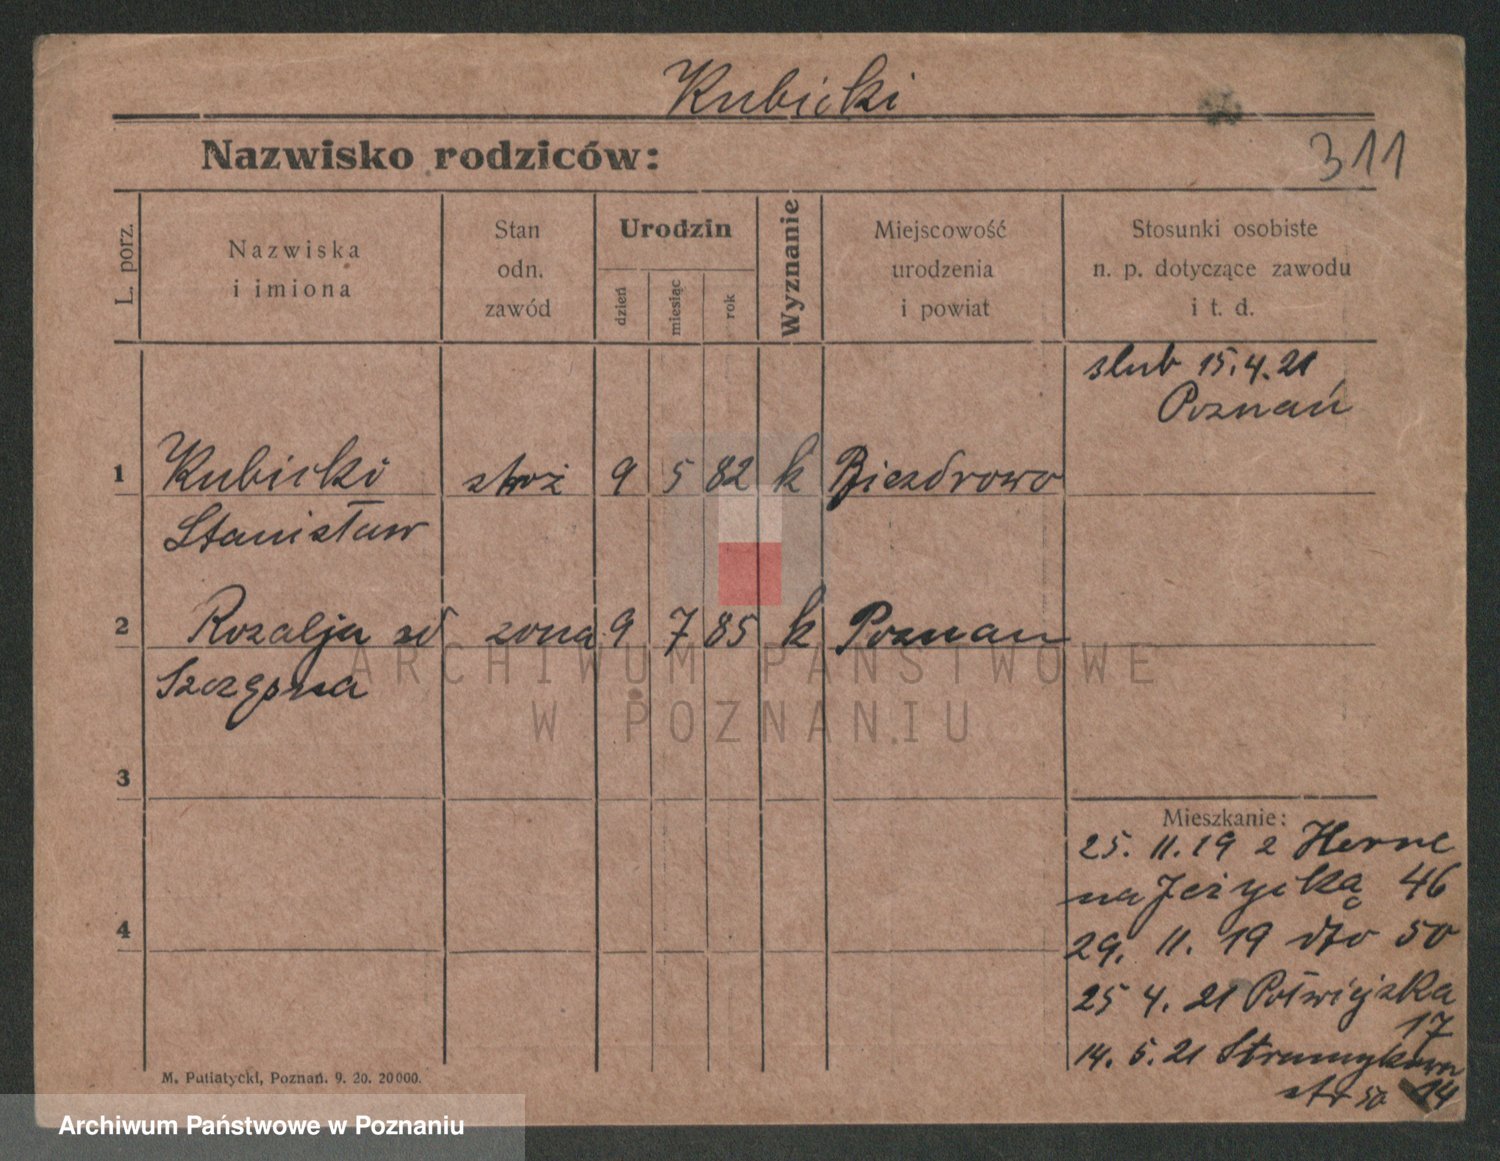 Kubicki
Nazwisko rodziców:
311
L. porz.
Nazwiska
i imiona
Stan
odn.
zawód
Urodzin
dzień
miesiąc
rok
Wyznanie
Miejscowość
urodzenia
i powiat
Stosunki osobiste
n. p. dotyczące zawodu
i t. d.
slub 15.4.21
Poznań
1 Kubicki stróż 9 5 82 k Biezdrowo
Stanisław
2 Rozalja zd zona 9 7 85 k Poznan
Szczęsna
3
4
Mieszkanie:
25. 11. 19 z Herne
na Jeżycką 46
29. 11. 19 dto 50
25 4. 21 Półwiejska
17
14. 5. 21 Strumykowa
14
M. Putiatycki, Poznań. 9. 20. 20000.
ARCHIWUM PAŃSTWOWE
W POZNANIU
Archiwum Państwowe w Poznaniu